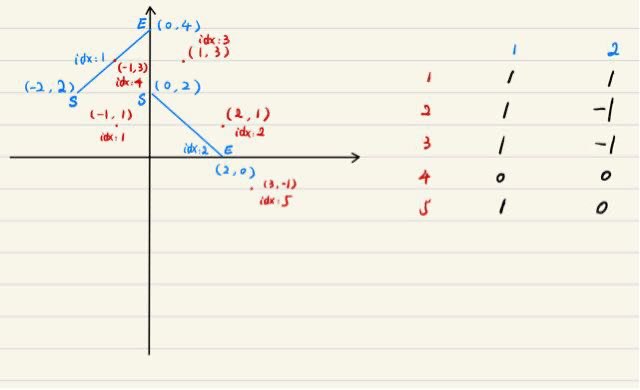 E (0,4)
idx:3
(1,3)
idx:1
(-1,3)
idx:4
(-2,2)
S
S (0,2)
(-1,1)
idx:1
(2,1)
idx:2
idx:2 E
(2,0)
(3,-1)
idx:5
1 2
1 1 1
2 1 -1
3 1 -1
4 0 0
5 1 0